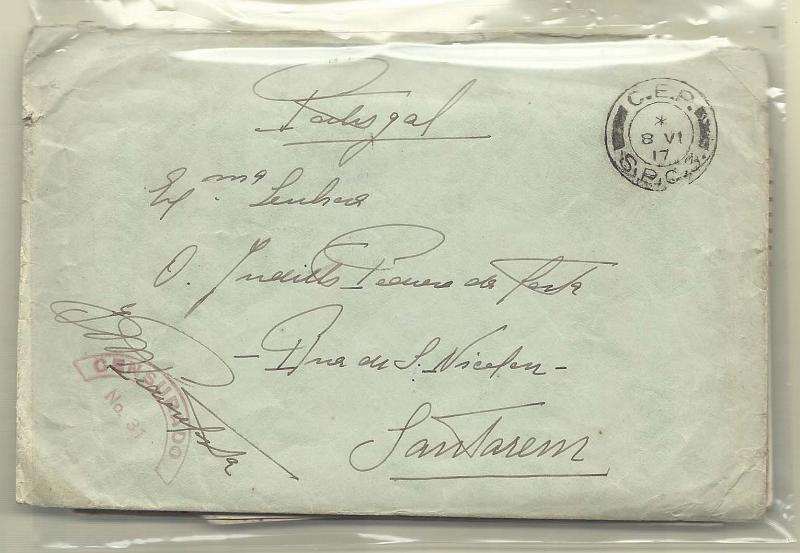 Portugal
C.E.P.
*
8 VI
17
S.P.C.3.
Exma. Senhora
D. Judith da Costa
- Rua de S. Nicolau -
Santarem
CENSURADO
No. 31
Costa